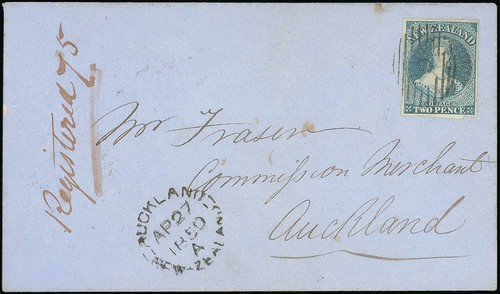 Registered 75
NEW ZEALAND
POSTAGE
TWO PENCE
Mr Fraser
Commission Merchant
Auckland
AUCKLAND
AP 27
1859
A
NEW-ZEALAND